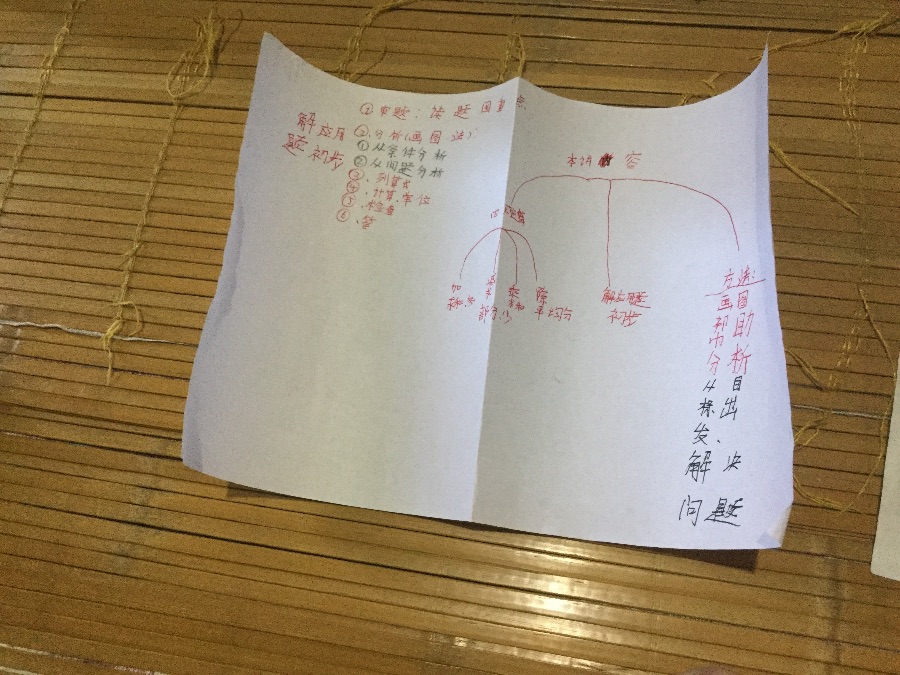 解应用
题初步
①审题：读题 圈重点
②分析(画图法)
①从条件分析
②从问题分析
③、列算式
④、计算、单位
⑤、检查
⑥、答
本讲 容
四
加
除
平均分
解应用题
初步
方法：
画图
帮助
分析
从目
标出
发、
解决
问题